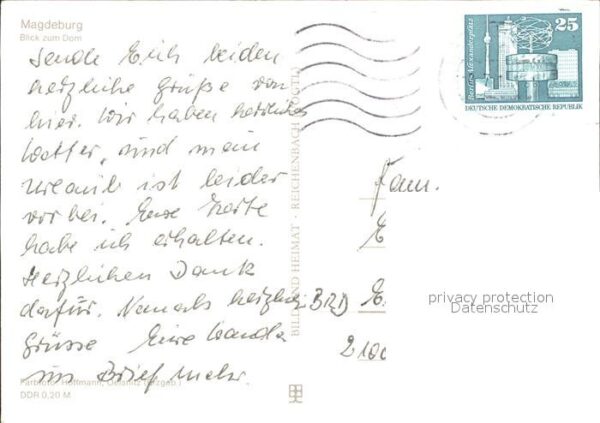 Magdeburg
Blick zum Dom
Sende Euch beiden
herzliche Grüße von
hier. Wir haben herrliches
Wetter, und mein
Urlaub ist leider
vorbei. Eure Karte
habe ich erhalten.
Herzlichen Dank
dafür. Nomals herzliche
Grüsse Eure Wanda
im Brief mehr.
Farbfoto: Hoffmann, Oelsnitz (Erzgeb.)
DDR 0,20 M
BILD UND HEIMAT · REICHENBACH (VOGTL)
25
Berlin, Alexanderplatz
DEUTSCHE DEMOKRATISCHE REPUBLIK
Fam.
E
E.
BRD
2100
privacy protection
Datenschutz